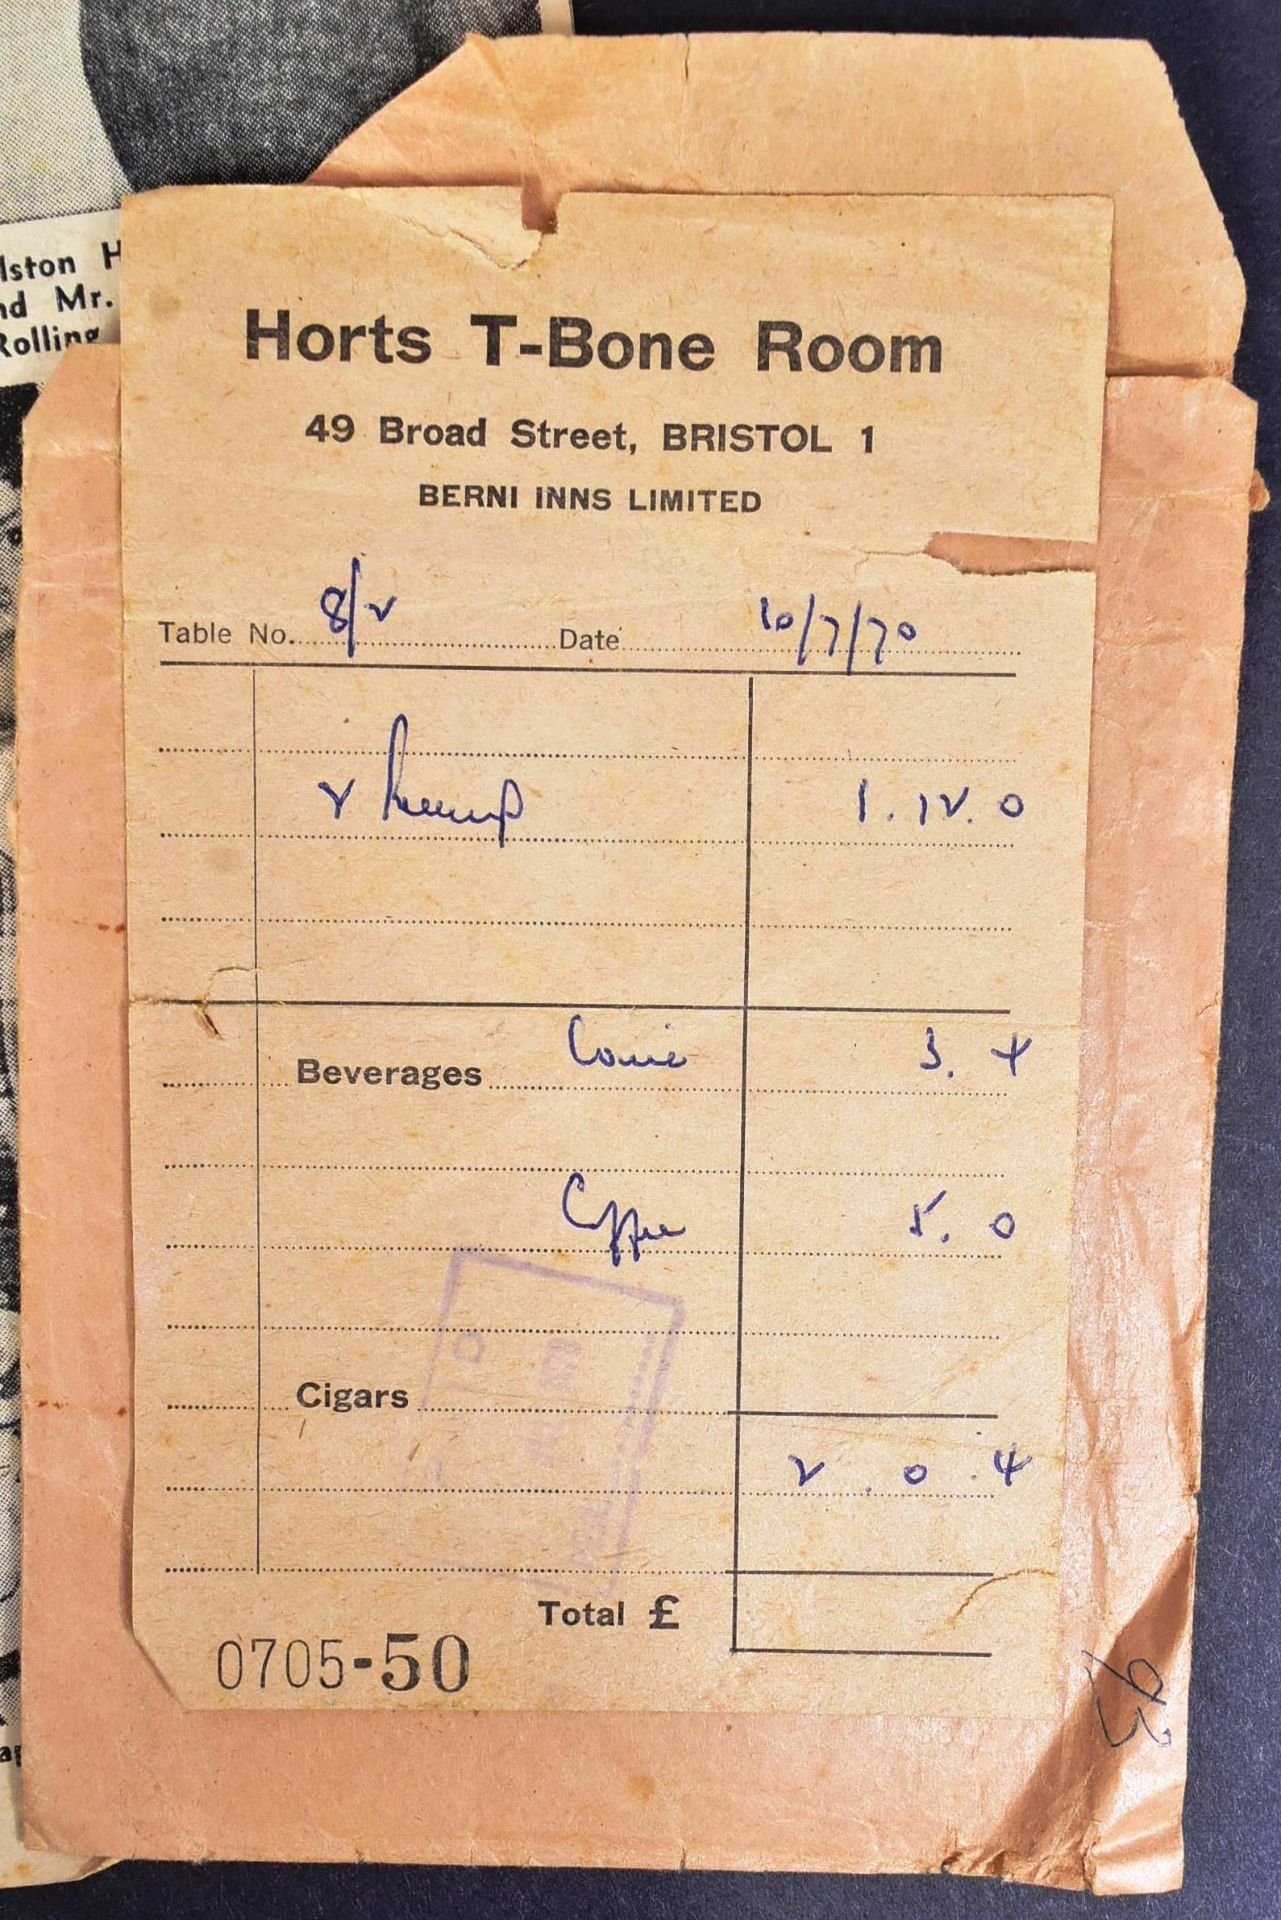 lston H
nd Mr.
Rolling
Horts T-Bone Room
49 Broad Street, BRISTOL 1
BERNI INNS LIMITED
Table No. 8/2 Date 10/7/70
2 1.12.0
Beverages 3. 4
Coffee 5. 0
Cigars
2 . 0 . 4
Total £
0705-50